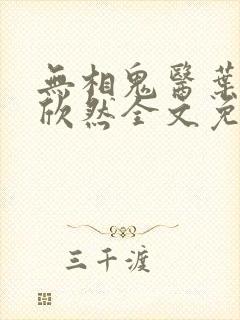 無相鬼醫葉
欣然全文免
三千渡